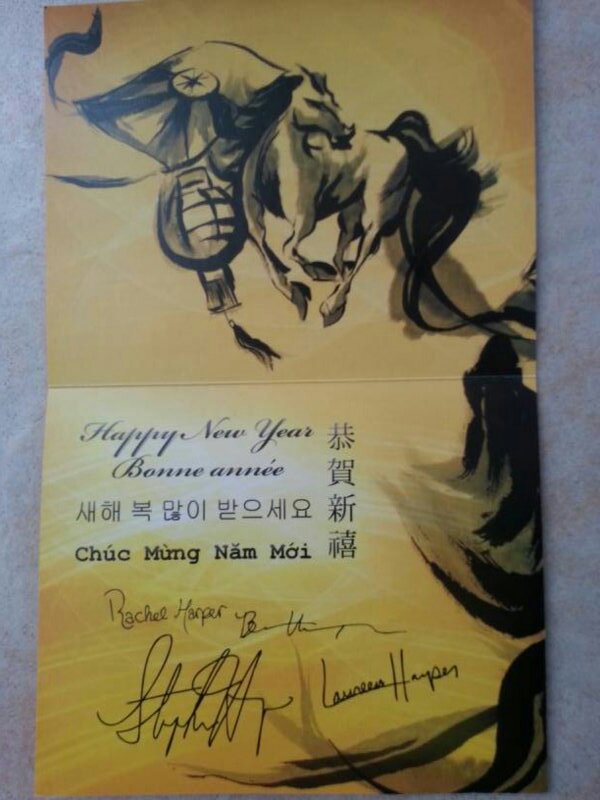 Happy New Year
Bonne année
새해 복 많이 받으세요
Chúc Mừng Năm Mới
恭賀新禧
Rachel Harper
Laureen Harper